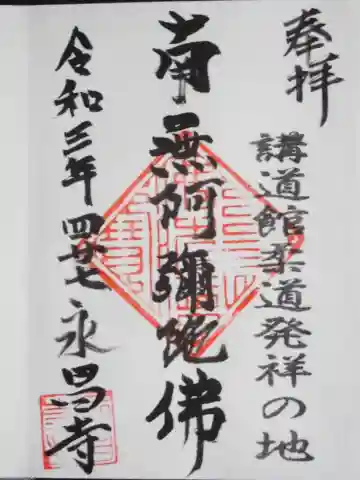 奉拝
講道館柔道発祥の地
南無阿彌陀佛
令和三年 四 廿七 永昌寺